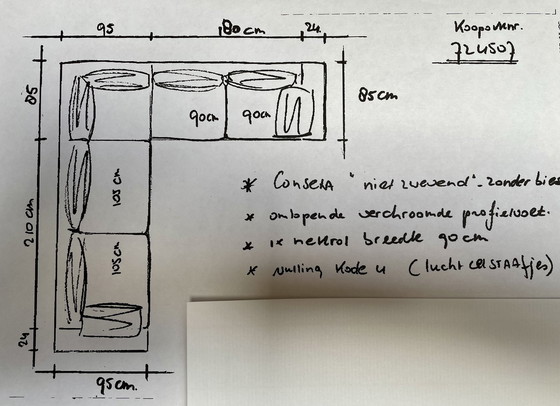 95 180cm 24.
Koopovknr.
724507
85 85cm
90cm 90cm
105 cm
* Conseta "niet zwevend" - zonder bies
* omlopende verchroomde profielvoet.
210cm
* 1x nekrol breedte 90cm
105cm
* vulling Kode 4 (luchtcelstaafjes)
24
95cm.